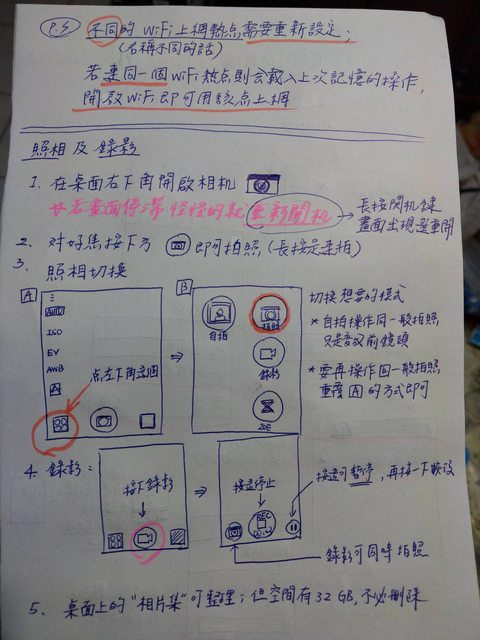 P.S 不同的 WiFi 上網熱点需要重新設定;
(名稱不同的話)
若連同一個 WiFi 熱点則会載入上次記憶的操作,
開啟 WiFi 即可用該点上網
照相及錄影
1. 在桌面右下角開啟相机
若畫面停滯怪怪的就重新開机 → 長按開机鍵
畫面出現選重開
2. 对好焦按下方 即可拍照 (長按是連拍)
3. 照相切換
A
AUTO
ISO
EV
AWB
点左下角這個
B
自拍
拍照
錄影
ZOE
切換想要的模式
* 自拍操作同一般拍照
只是改前鏡頭
* 要再操作回一般拍照
重覆 A 的方式即可
4. 錄影:
按下錄影
按這停止
REC
按這可暫停, 再按一下恢復
錄影可同時拍照
5. 桌面上的"相片集"可整理; 但空間有 32 GB, 不必刪除